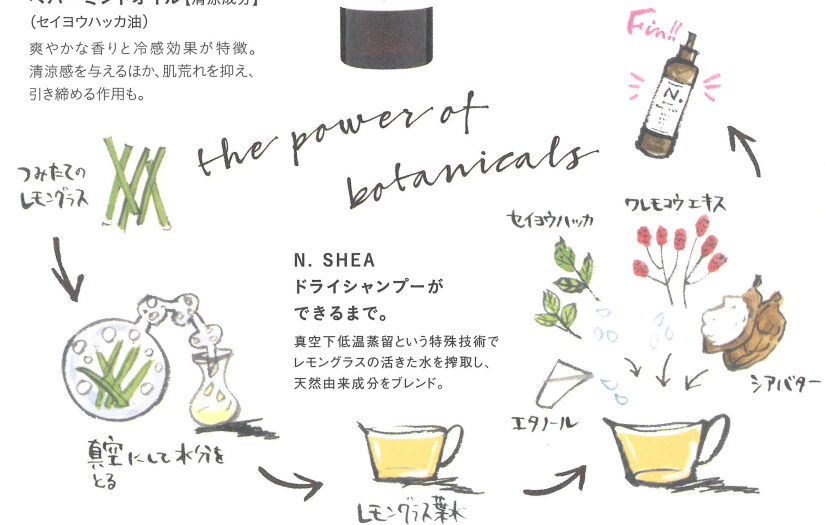 ペパーミントオイル【清涼成分】
（セイヨウハッカ油）
爽やかな香りと冷感効果が特徴。
清涼感を与えるほか、肌荒れを抑え、
引き締める作用も。
the power of
botanicals
Fin!!
N.
つみたての
レモングラス
N. SHEA
ドライシャンプーが
できるまで。
真空下低温蒸留という特殊技術で
レモングラスの活きた水を搾取し、
天然由来成分をブレンド。
セイヨウハッカ
ワレモコウエキス
シアバター
エタノール
真空にして水分を
とる
レモングラス葉水